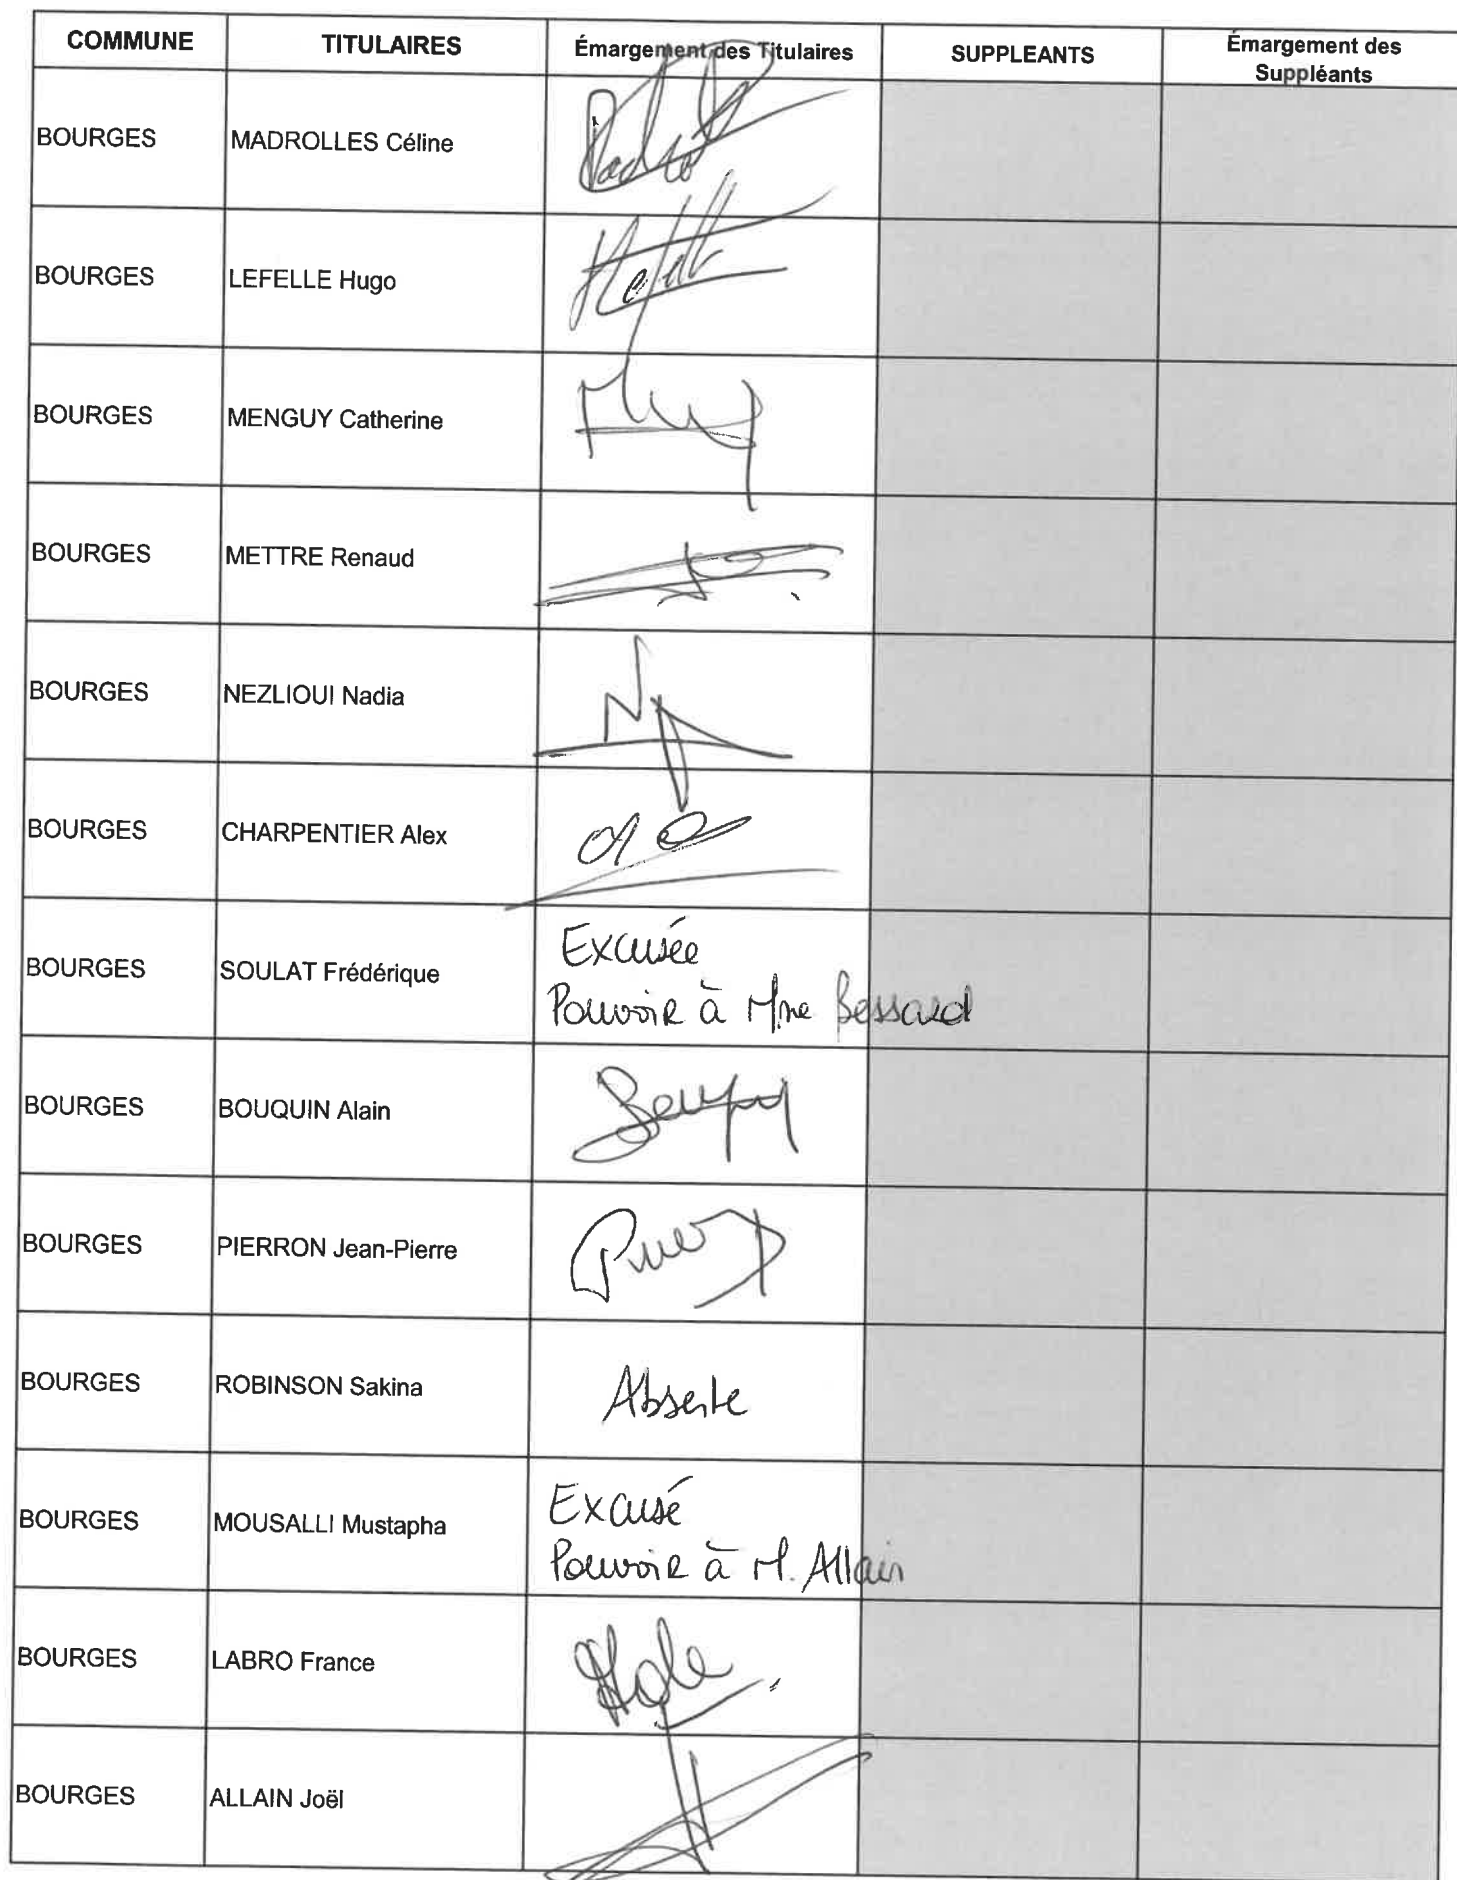 COMMUNE TITULAIRES Émargement des Titulaires SUPPLEANTS Émargement des
Suppléants
BOURGES MADROLLES Céline
BOURGES LEFELLE Hugo
BOURGES MENGUY Catherine
BOURGES METTRE Renaud
BOURGES NEZLIOUI Nadia
BOURGES CHARPENTIER Alex
BOURGES SOULAT Frédérique Excusée
Pouvoir à Mme Bessard
BOURGES BOUQUIN Alain
BOURGES PIERRON Jean-Pierre
BOURGES ROBINSON Sakina Absente
BOURGES MOUSALLI Mustapha Excusé
Pouvoir à M. Allain
BOURGES LABRO France
BOURGES ALLAIN Joël